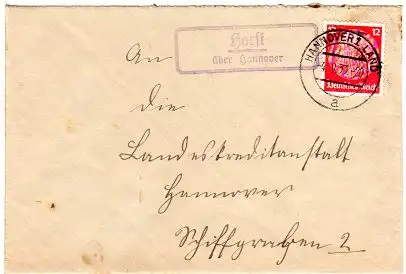 Horst
über Hannover
12 12
HANNOVER 1 LAND
a
Deutsches Reich
An
die
Landeskreditanstalt
Hannover
Schiffgraben 2